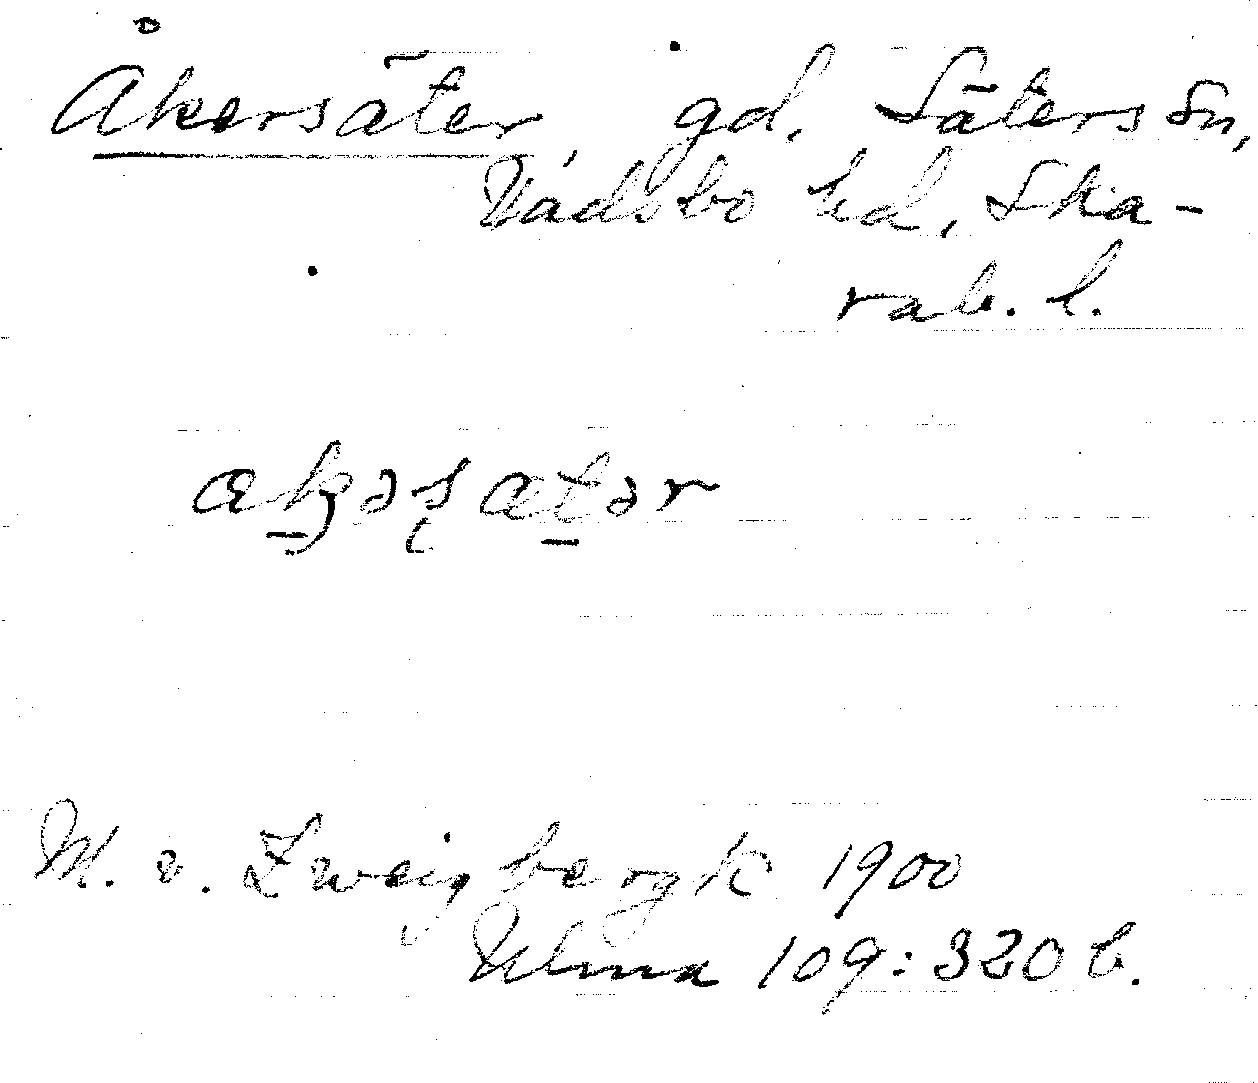 Åkersäter, gd, Säters sn,
Vadsbo hd, Ska-
rab. l.
M. v. Zweigbergk 1900
Ulma 109:320 b.